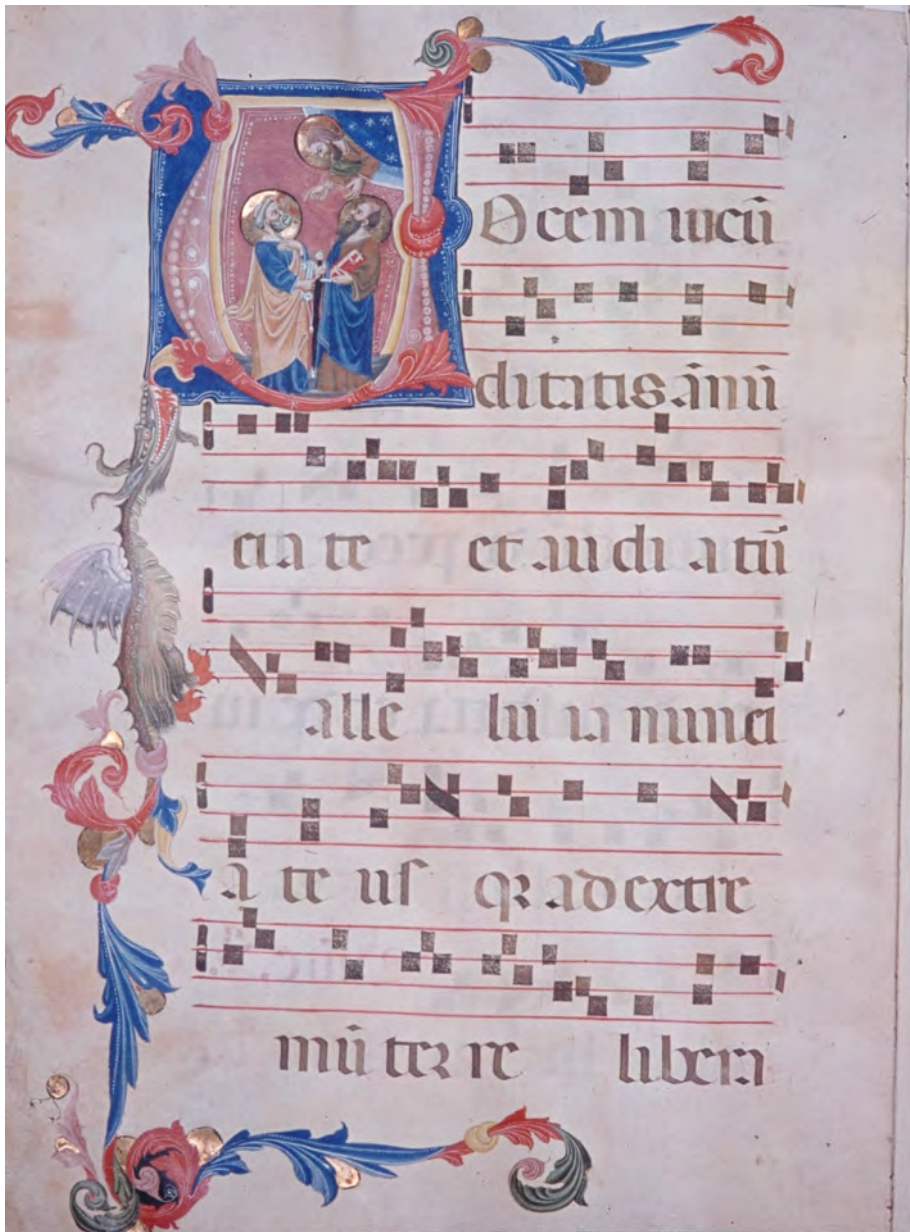 Vocem iucū
ditatis ānūī
ciate et audiatū
alleluia nunci
ate usq3 ad extre
mū terre libera